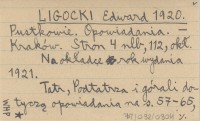 LIGOCKI Edward 1920.
Pustkowie. Opowiadania. —
Kraków. Stron 4 nlb, 112, okt.
Na okładce rok wydania
1921.
Tatr, Podtatrza i górali do-
tyczą opowiadania na s. 57-65,
WHP